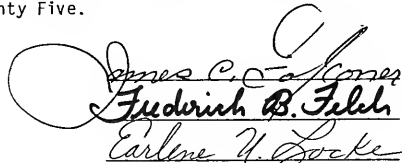 nty Five.
James C.
Frederick B. Felch
Earlene N. Locke